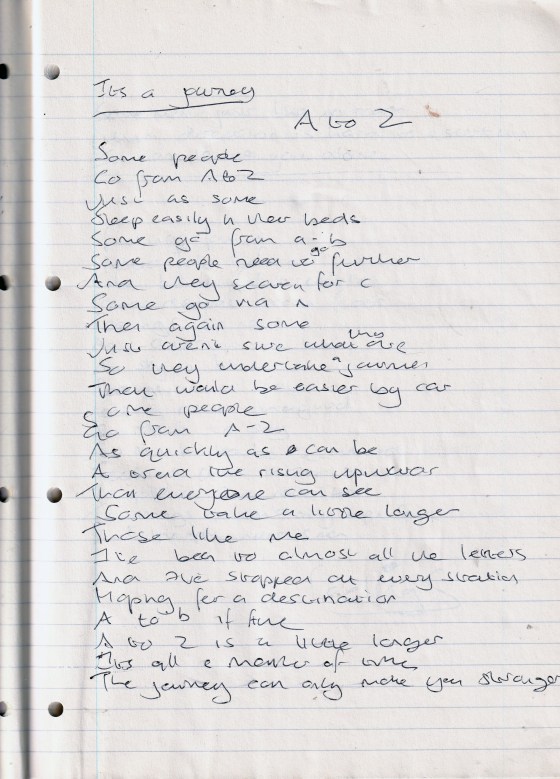 Its a journey
A to Z
Some people
Go from A to Z
Just as some
Sleep easily in their beds
Some go from a - b
Some people need to go further
And they search for c
Some go via n
Then again some
Just aren't sure what they are
So they undertake a journey
That would be easier by car
Some people
Go from A-Z
As quickly as can be
A trend like rising
That everyone can see
Some take a little longer
Those like me
I've been to almost all the letters
And I've stopped at every station
Hoping for a destination
A to b if fine
A to Z is a little longer
Its all a matter of time
The journey can only make you stronger